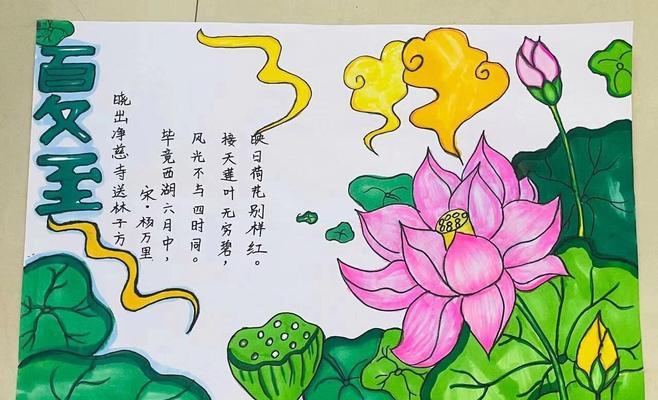 夏至
晓出净慈寺送林子方
宋·杨万里
毕竟西湖六月中，
风光不与四时同。
接天莲叶无穷碧，
映日荷花别样红。